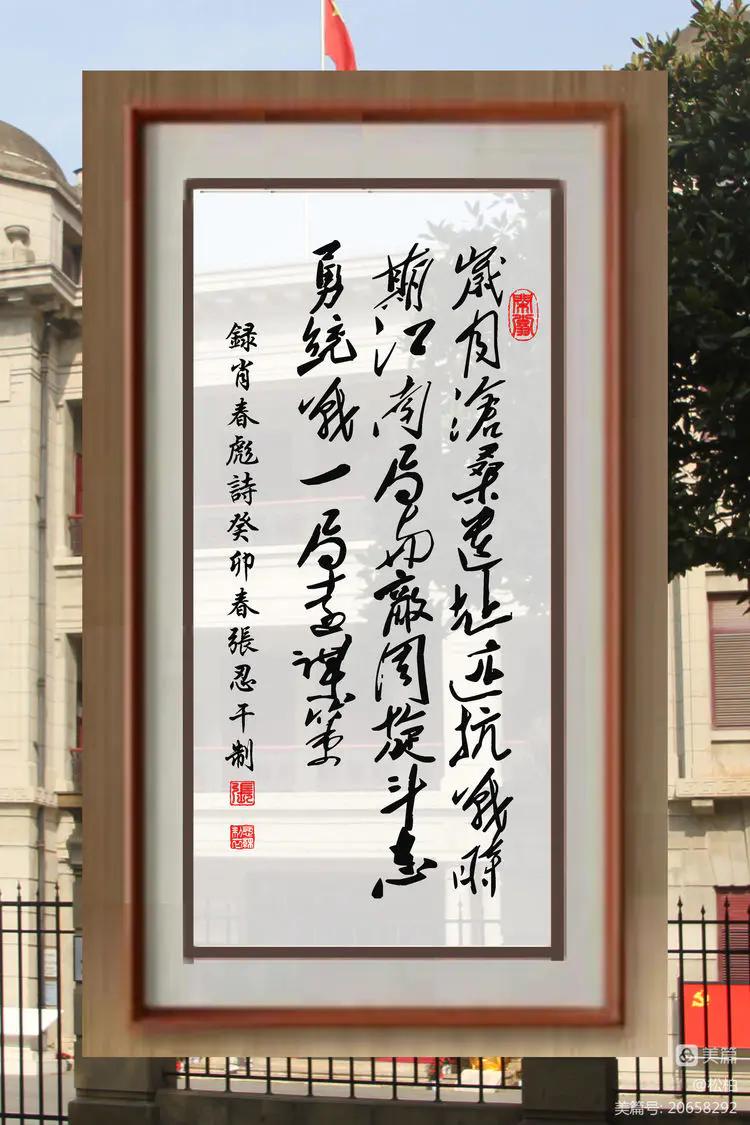 歲月滄桑遺址迹抗戰時
期江南局与敵周旋斗志
勇統戰一局謀策
録肖春彪詩癸卯春張忍干制
張
美篇
@松柏
美篇号: 20658292